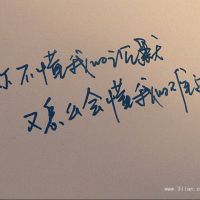 你不懂我的沉默
又怎么会懂我的难过
www.3lian.c